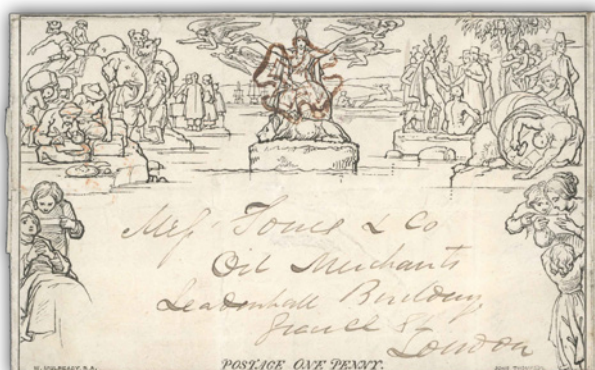 Messrs Tonge & Co
Oil Merchants
Leadenhall Building
Grace St
London
W. MULREADY. R.A.
POSTAGE ONE PENNY.
JOHN THOMPSON